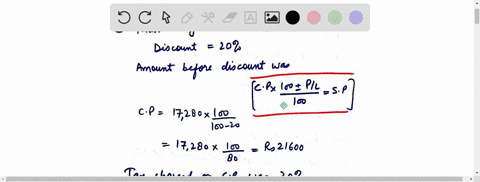 Discount = 20%
Amount before discount was
[C.P × (100 ± P/L)/100 = S.P]
C.P = 17,280 × 100/(100-20)
= 17,280 × 100/80 = Rs 21600